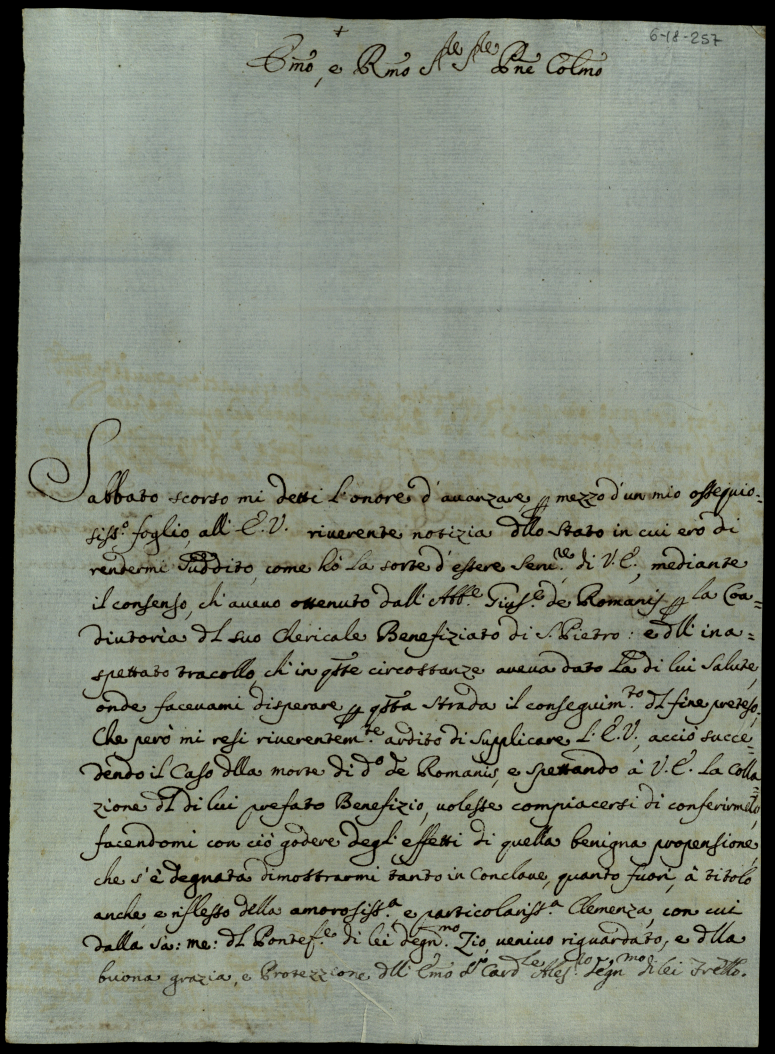 6-18-257
+
Emo, e Rmo Sre Sre Pne Colmo
Sabbato scorso mi detti l'onore d'avanzare p mezzo d'un mio ossequio=
siss.o foglio, all' E.V. riverente notizia dllo Stato in cui ero di
rendermi Suddito, come hò la sorte d'essere Serv.re di V.E., mediante
il consenso, ch'avevo ottenuto dall'Abb.e Gius.e de Romanis p la Coa=
diutoria dl suo Chericale Benefiziato di S. Pietro: e dll' ina=
spettato tracollo, ch'in qste circostanze aveva dato la di lui Salute,
onde facevami disperare p qsta strada il conseguim.to dl fine preteso.
Che però mi resi riverentem.te ardito di supplicare l'E.V., acciò succe=
dendo il Caso dlla morte di d.o de Romanis, e spettando à V.E. la Colla=
zione dl di lui prefato Benefizio, volesse compiacersi di conferirmelo,
facendomi con ciò godere degl'effetti di quella benigna propensione,
che s'è degnata dimostrarmi tanto in Conclave, quanto fuori, à titolo
anche, e riflesso della amorosiss.a, e particolariss.a Clemenza, con cui
dalla sa: me: dl Pontef.e di lei degn.mo Zio, venivo riguardato, e dlla
buona grazia, e Protezzione dll' Emo Sr Card.le Aless.o degn.mo di lei Frello.